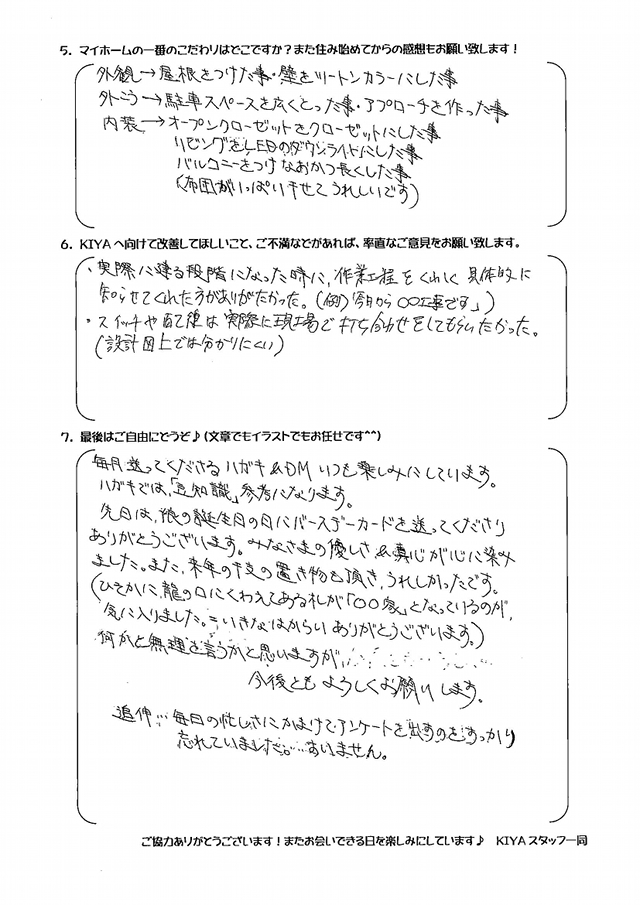 5. マイホームの一番のこだわりはどこですか？また住み始めてからの感想もお願い致します！
外観→屋根をつけた事・壁をツートンカラーにした事
外こう→駐車スペースを広くとった事・アプローチを作った事
内装→オープンクローゼットをクローゼットにした事
リビングをLEDのダウンライトにした事
バルコニーをつけなおかつ長くした事
(布団がいっぱい干せてうれしいです)
6. KIYAへ向けて改善してほしいこと、ご不満などがあれば、率直なご意見をお願い致します。
・実際に建る段階になった時に、作業工程をくわしく具体的に
知らせてくれた方がありがたかった。(例)「今日から〇〇工事です」)
・スイッチや配線は実際に現場で打ち合わせをしてもらいたかった。
(設計図上では分かりにくい)
7. 最後はご自由にどうぞ♪(文章でもイラストでもお任せです^^)
毎月送ってくださるハガキ&DMいつも楽しみにしています。
ハガキでは、「豆知識」参考になります。
先日は、娘の誕生日の日にバースデーカードを送ってくださり
ありがとうございます。みなさまの優しさ&真心が心に染み
ました。また、来年の干支の置き物も頂き、うれしかったです。
(ひそかに、龍の口にくわえてある札が「〇〇家」となっているのが、
気に入りました。いきなはからいありがとうございます。)
何かと無理を言うかと思いますが、
今後ともよろしくお願いします。
追伸… 毎日の忙しさにかまけてアンケートを出すのをすっかり
忘れていました。…すいません。
ご協力ありがとうございます！またお会いできる日を楽しみにしています♪ KIYAスタッフ一同